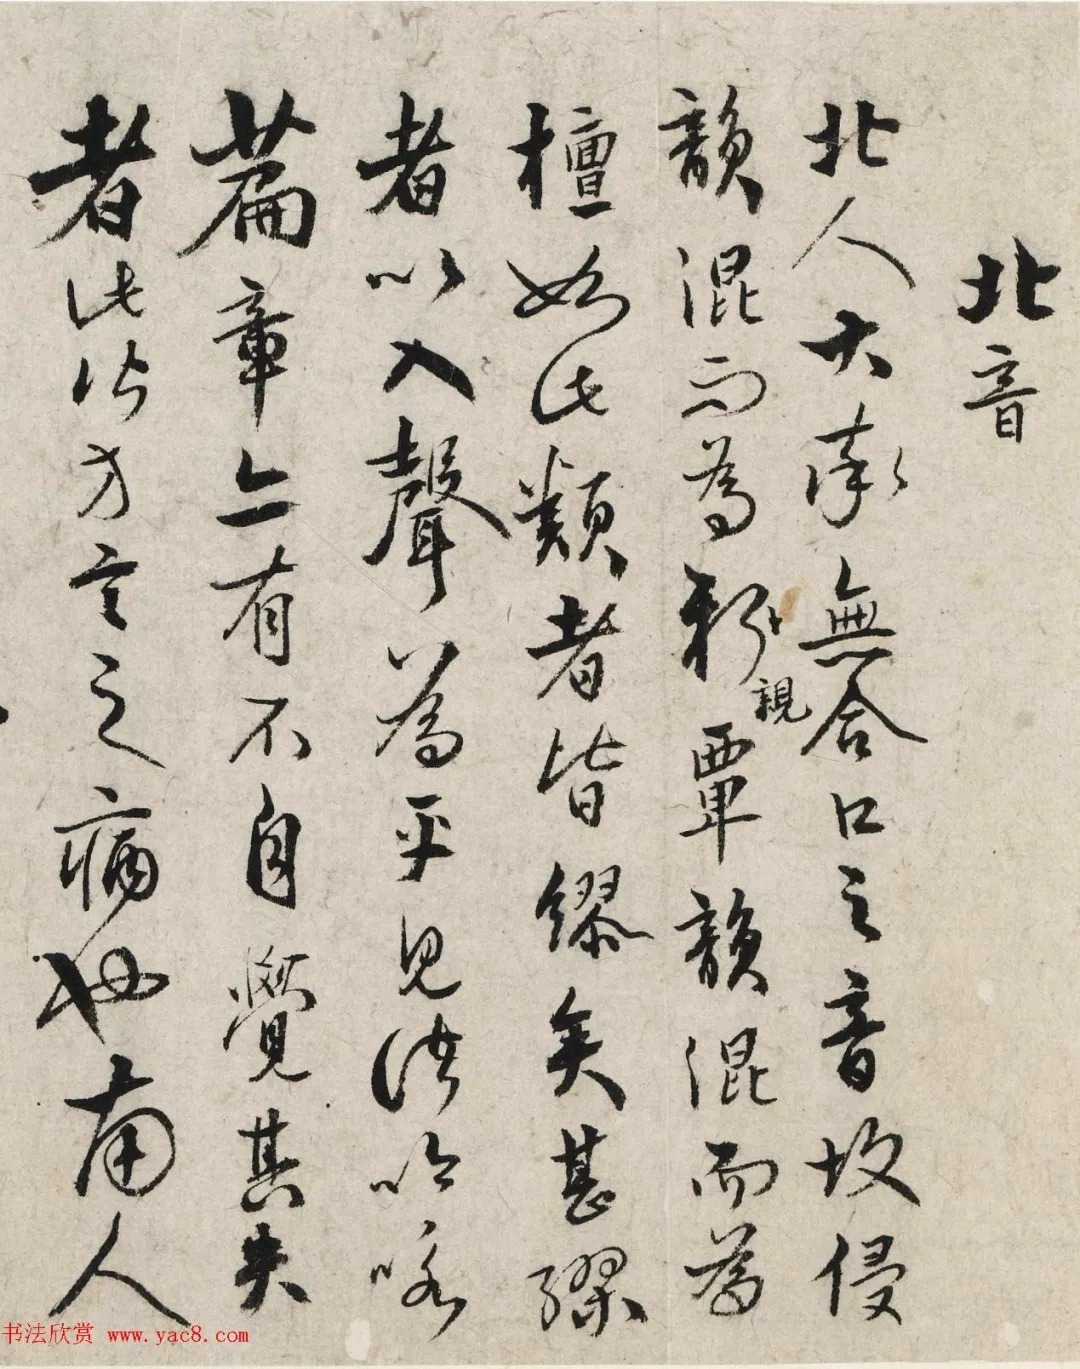 北音
北人大率無合口之音故侵
韻混而為親覃韻混而為
檀如此類者皆繆矣甚繆
者以入聲為平見諸吟咏
篇章亦有不自覺其失
者此皆方言之病也南人
书法欣赏 www.yac8.com